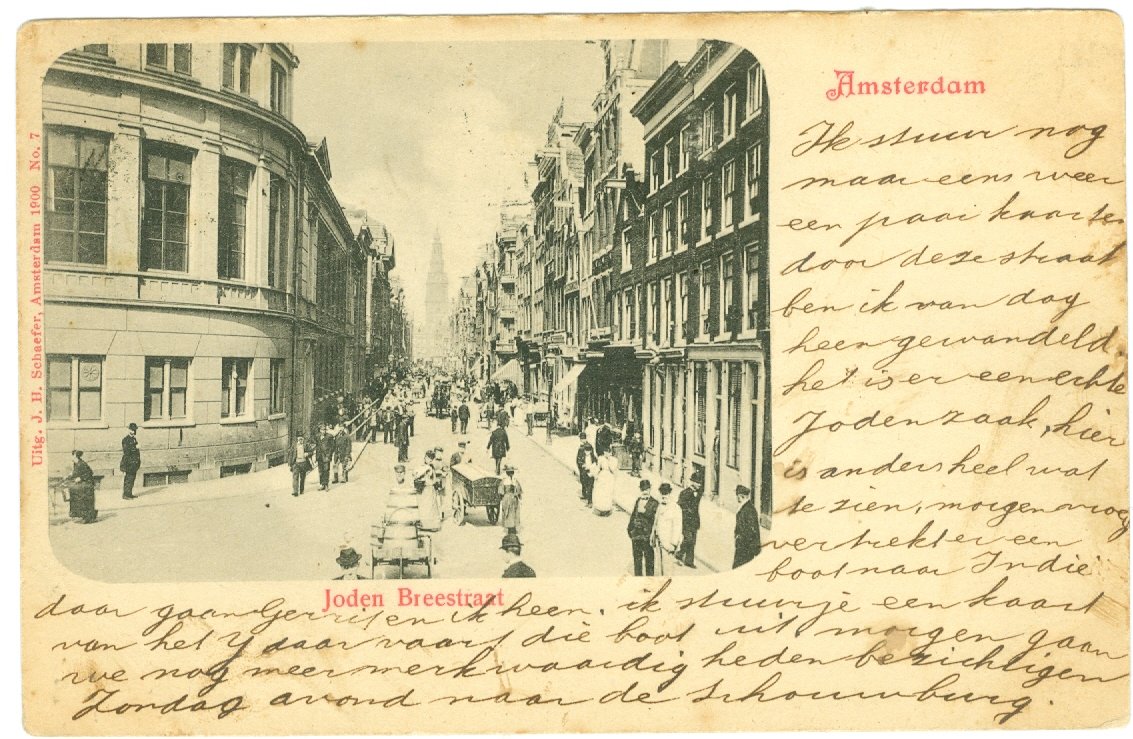 Amsterdam
Ik stuur nog
maar eens weer
een paai kaarten
door deze straat
ben ik van dag
heen gewandeld.
het is er een echte
Joden zaak, hier
is anders heel wat
te zien, morgen vroeg
vertrekt er een
boot naar Indië
daar gaan Gerrit en ik heen. ik stuur je een kaart
van het Y daar vaart die boot uit morgen gaan
we nog meer merkwaardigheden bezichtigen
Zondag avond naar de schouwburg.
Joden Breestraat
Uitg. J. H. Schaefer, Amsterdam 1900 No. 7